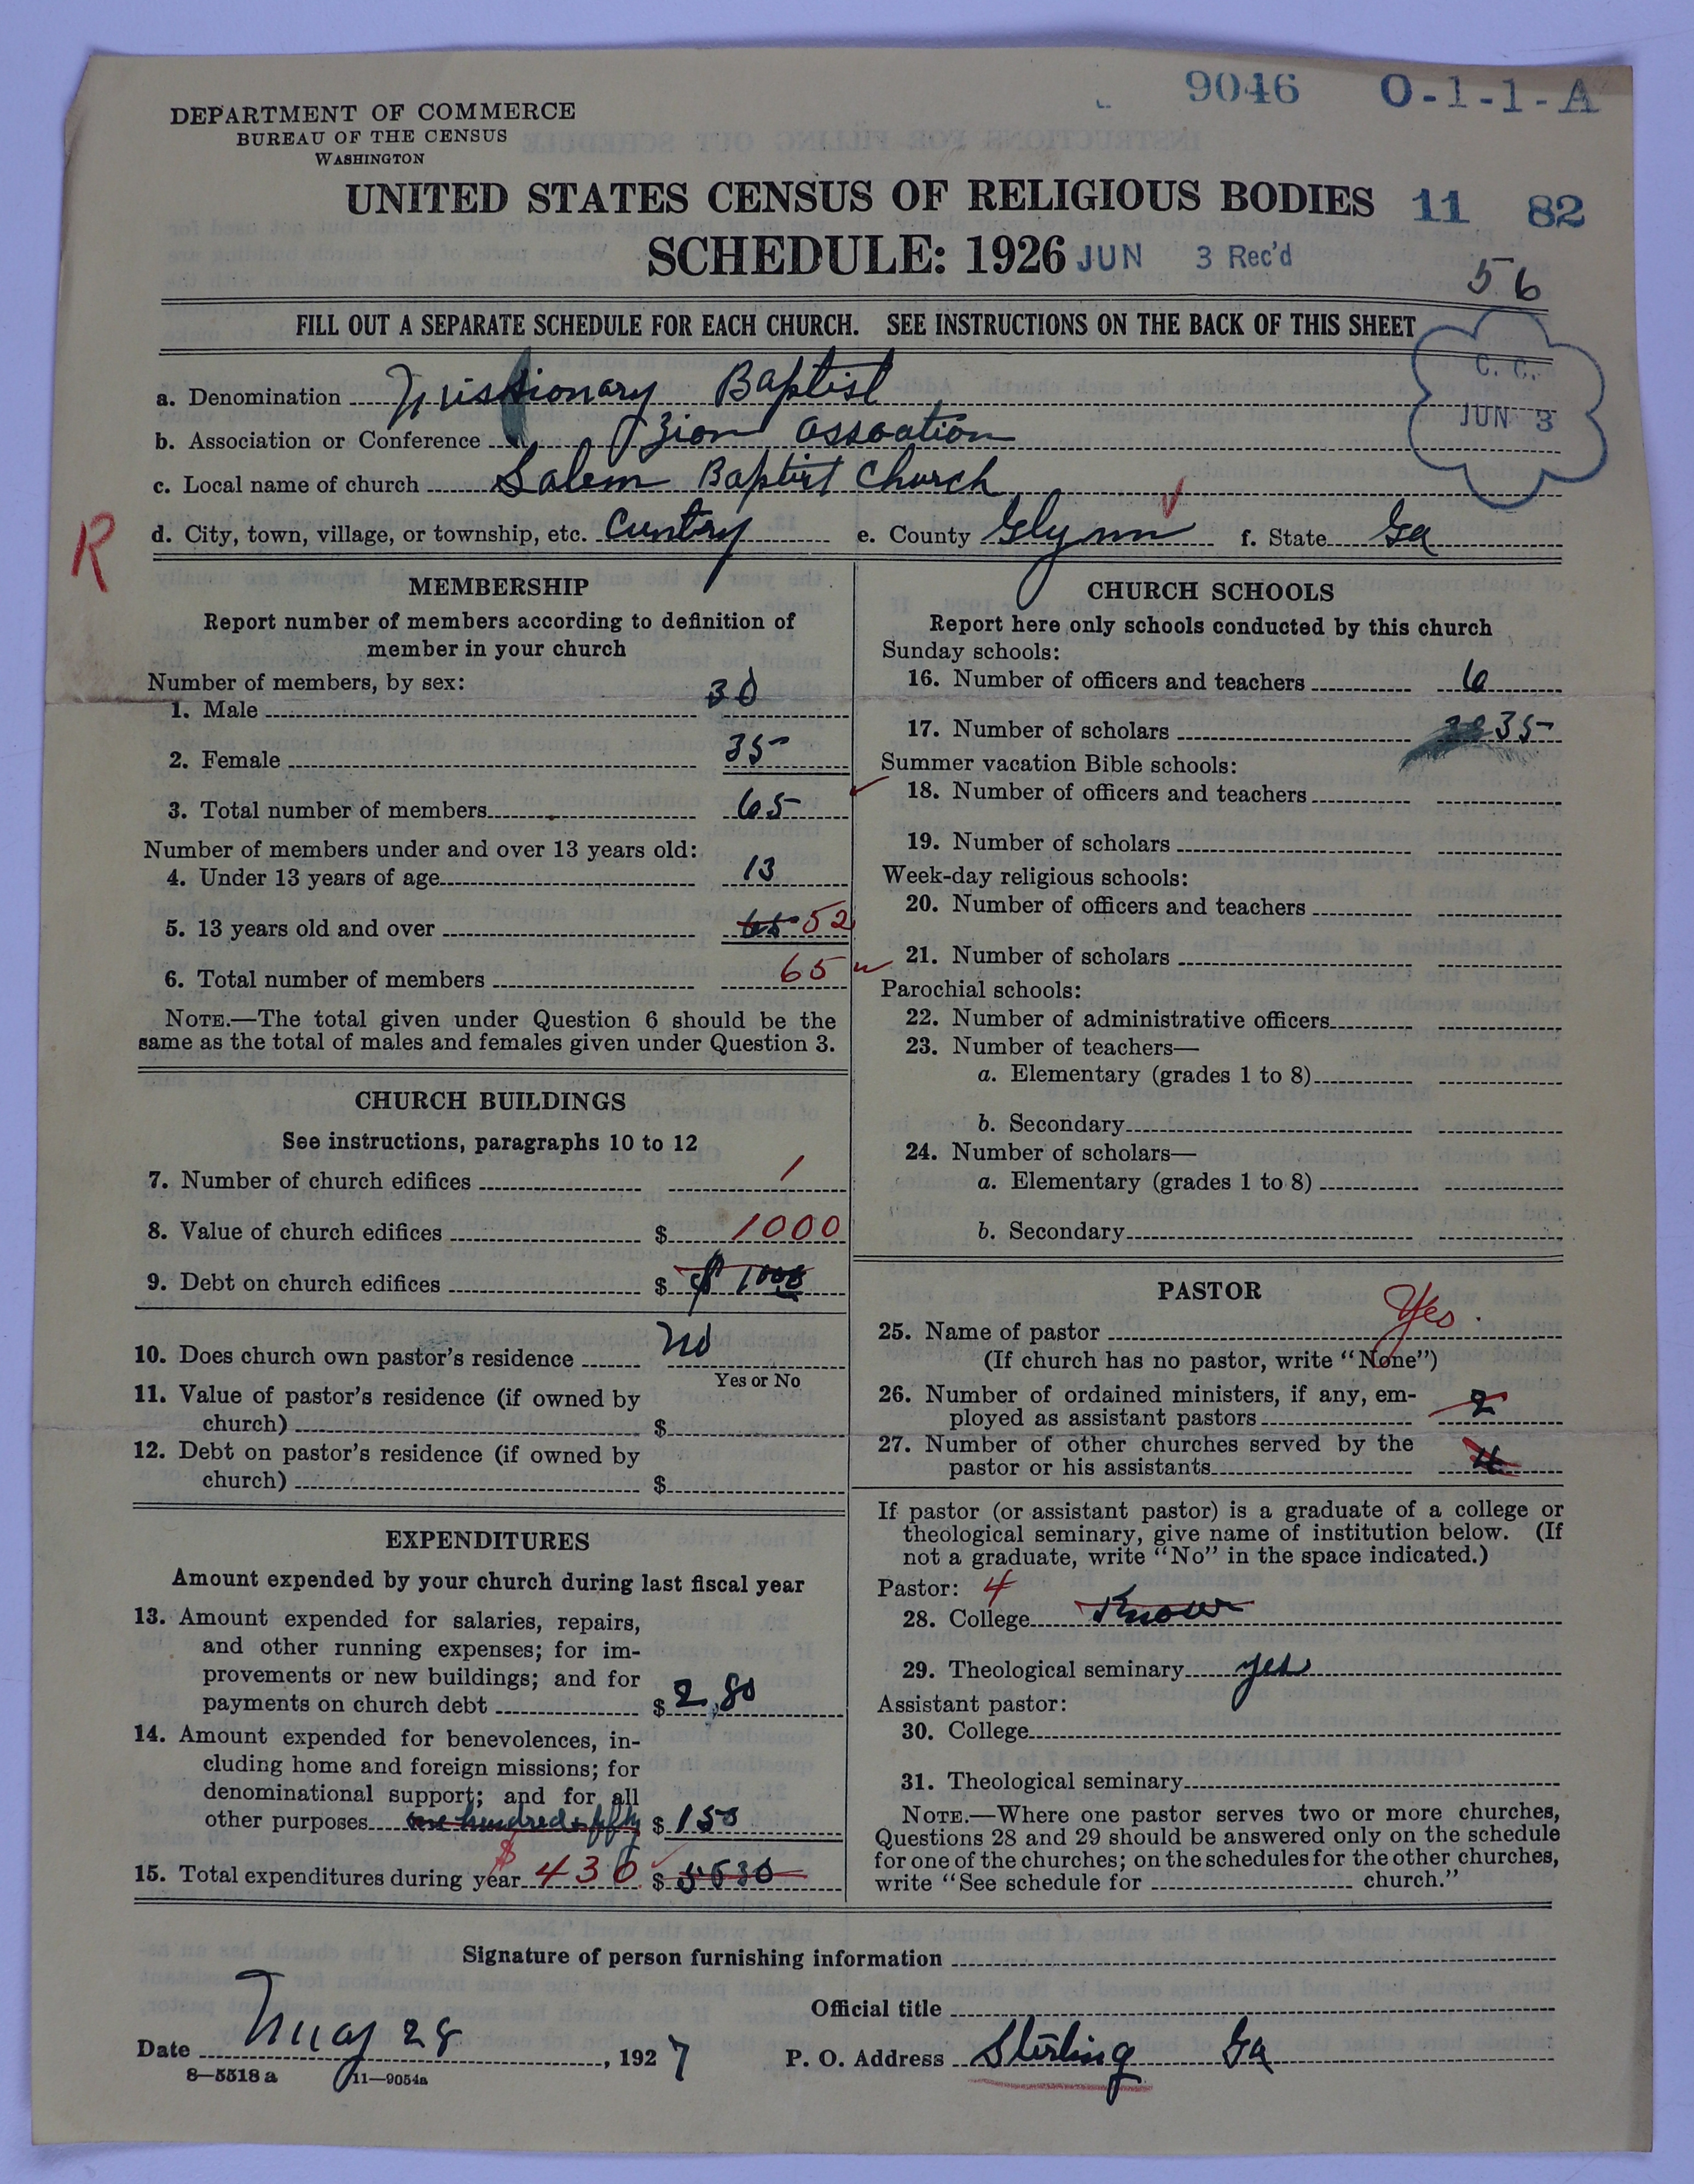 9046 O-1-1-A
DEPARTMENT OF COMMERCE
BUREAU OF THE CENSUS
WASHINGTON
UNITED STATES CENSUS OF RELIGIOUS BODIES 11 82
SCHEDULE: 1926 JUN 3 Rec'd
56
FILL OUT A SEPARATE SCHEDULE FOR EACH CHURCH. SEE INSTRUCTIONS ON THE BACK OF THIS SHEET
C. C.
JUN 3
a. Denomination Missionary Baptist
b. Association or Conference Zion Assoation
c. Local name of church Salem Baptist Church
R
d. City, town, village, or township, etc. Cuntry e. County Glynn f. State Ga
MEMBERSHIP
Report number of members according to definition of
member in your church
Number of members, by sex:
1. Male 30
2. Female 35
3. Total number of members 65
Number of members under and over 13 years old:
4. Under 13 years of age 13
5. 13 years old and over 65 52
6. Total number of members 65
NOTE.—The total given under Question 6 should be the
same as the total of males and females given under Question 3.
CHURCH BUILDINGS
See instructions, paragraphs 10 to 12
7. Number of church edifices 1
8. Value of church edifices $ 1000
9. Debt on church edifices $ $ 1000
10. Does church own pastor's residence no
Yes or No
11. Value of pastor's residence (if owned by
church) $
12. Debt on pastor's residence (if owned by
church) $
EXPENDITURES
Amount expended by your church during last fiscal year
13. Amount expended for salaries, repairs,
and other running expenses; for im-
provements or new buildings; and for
payments on church debt $ 2,80
14. Amount expended for benevolences, in-
cluding home and foreign missions; for
denominational support; and for all
other purposes one hundred & fifty $ 150
15. Total expenditures during year $ 430 $
CHURCH SCHOOLS
Report here only schools conducted by this church
Sunday schools:
16. Number of officers and teachers 6
17. Number of scholars 35
Summer vacation Bible schools:
18. Number of officers and teachers
19. Number of scholars
Week-day religious schools:
20. Number of officers and teachers
21. Number of scholars
Parochial schools:
22. Number of administrative officers
23. Number of teachers—
a. Elementary (grades 1 to 8)
b. Secondary
24. Number of scholars—
a. Elementary (grades 1 to 8)
b. Secondary
PASTOR
25. Name of pastor Yes
(If church has no pastor, write "None")
26. Number of ordained ministers, if any, em-
ployed as assistant pastors 2
27. Number of other churches served by the
pastor or his assistants 4
If pastor (or assistant pastor) is a graduate of a college or
theological seminary, give name of institution below. (If
not a graduate, write "No" in the space indicated.)
Pastor: 4
28. College Know
29. Theological seminary yes
Assistant pastor:
30. College
31. Theological seminary
NOTE.—Where one pastor serves two or more churches,
Questions 28 and 29 should be answered only on the schedule
for one of the churches; on the schedules for the other churches,
write "See schedule for church."
Signature of person furnishing information
Official title
Date May 28, 1927 P. O. Address Sterling Ga
8—5518 a 11—9054a